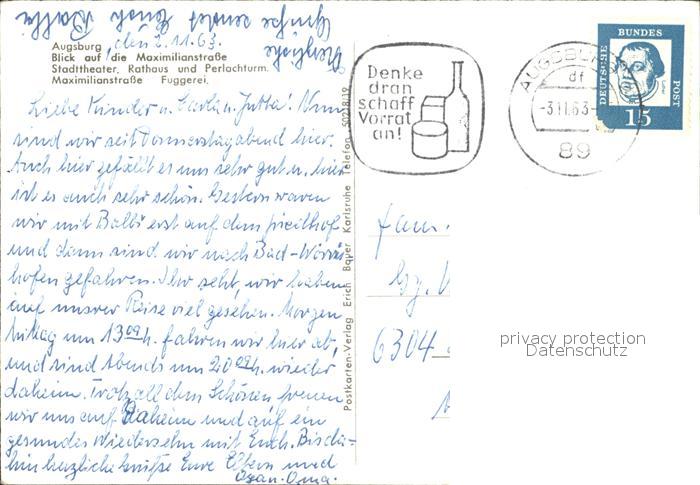 Herzliche
Grüße sendet Euch Balbi
Augsburg, den 2.11.63.
Blick auf die Maximilianstraße
Stadttheater, Rathaus und Perlachturm.
Maximilianstraße Fuggerei.
Liebe Kinder u. Carla u. Jutta! Nun
sind wir seit Donnerstagabend hier.
Auch hier gefällt es uns sehr gut u. hier
ist es auch sehr schön. Gestern waren
wir mit Balbi erst auf dem Friedhof
und dann sind wir nach Bad-Wöris
hofen gefahren. Ihr seht, wir haben
auf unsrer Reise viel gesehen. Morgen
Mittag um 13 09 h. fahren wir hier ab,
und sind Abends um 20 09 h. wieder
daheim. Trotz all dem Schönen freuen
wir uns auf Daheim und auf ein
gesundes Wiedersehn mit Euch. Bis da-
hin herzliche Grüße Eure Eltern und
Opa u. Oma.
Postkarten-Verlag Erich Bauer Karlsruhe Telefon 50218/19
Denke
dran
schaff
Vorrat
an!
AUGSBURG
df
-3.11.63-
89
DEUTSCHE
BUNDES
POST
Luther
15
Fam.
6304
privacy protection
Datenschutz